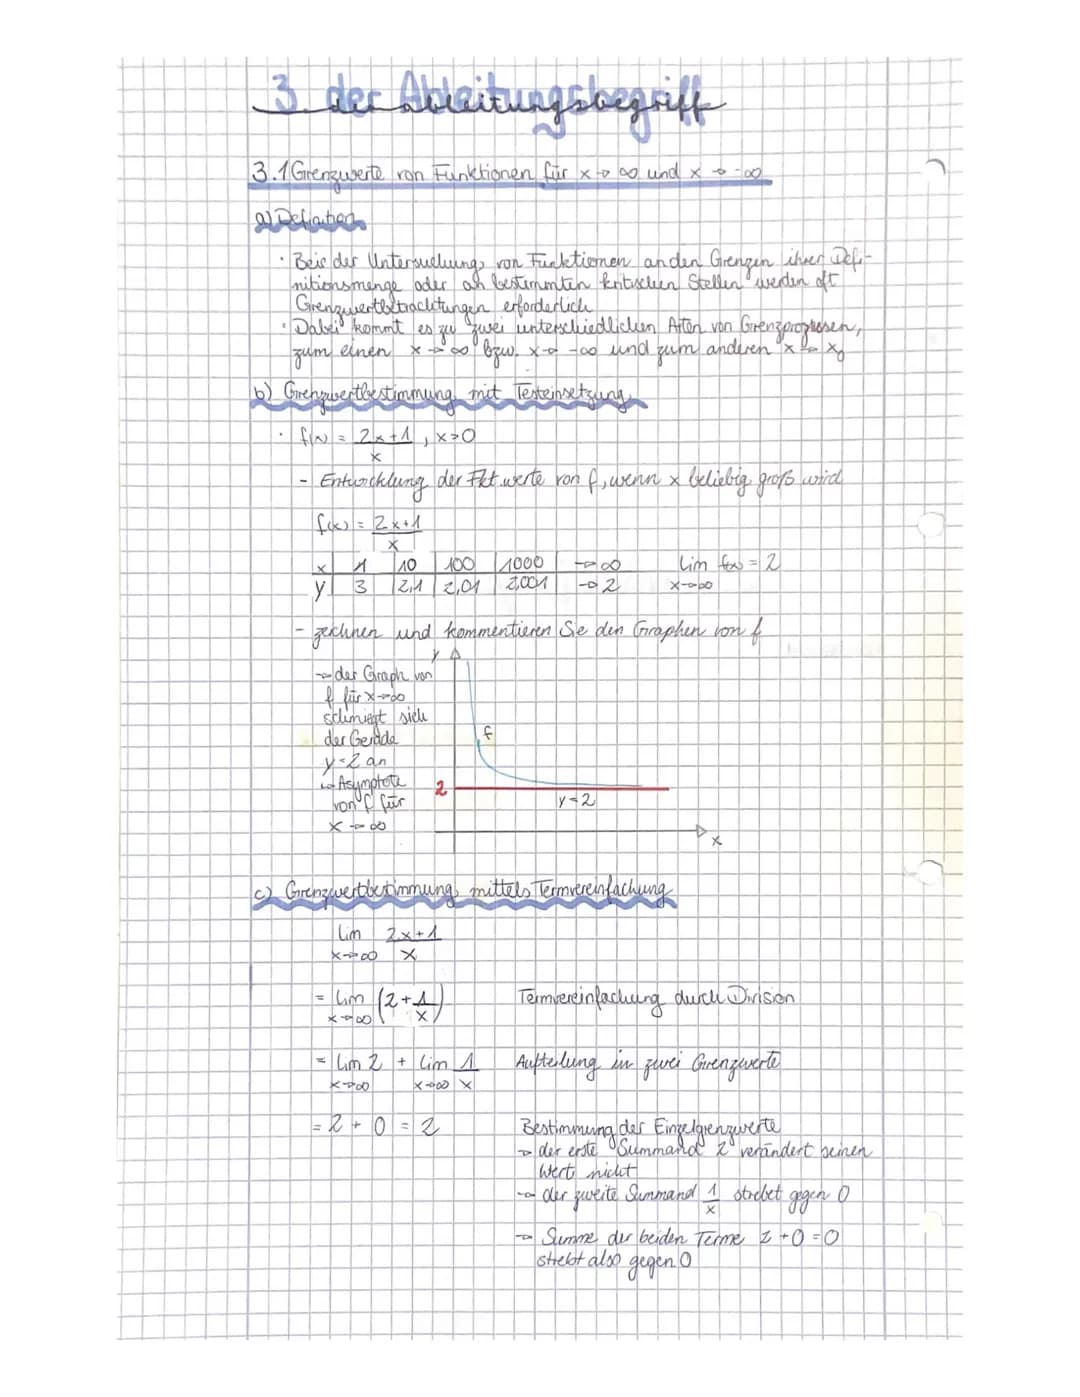 3. der Ableitungsbegriff
der ableitungsbegriff
3.1 Grenzwerte von Funktionen für x → ∞ und x → -∞
a) Definition
· Beis der Untersuchung von Funktionen an den Grenzen ihrer Defi-
nitionsmenge oder an bestimmten kritischen Stellen werden oft
Grenzwertbetrachtungen erforderlich
· Dabei kommt es zu zwei unterschiedlichen Arten von Grenzprozessen,
zum einen x → ∞ bzw. x → -∞ und zum anderen x → x₀
b) Grenzwertbestimmung mit Testeinsetzung
· f(x) = 2x+1 / x , x>0
- Entwicklung der Fkt.werte von f, wenn x beliebig groß wird
f(x) = 2x+1 / x
x | 1 | 10 | 100 | 1000 | → ∞ lim f(x) = 2
y | 3 | 2,1 | 2,01 | 2,001 | → 2 x→∞
- zeichnen und kommentieren Sie den Graphen von f
y
→ der Graph von
f für x→∞
schmiegt sich
der Gerade
y=2 an
↳ Asymptote
von f für
x → ∞
f
2
y=2
x
c) Grenzwertbestimmung mittels Termvereinfachung
lim 2x+1 / x
x→∞
= lim (2 + 1/x) Termvereinfachung durch Division
x→∞
= lim 2 + lim 1/x Aufteilung in zwei Grenzwerte
x→∞ x→∞
= 2 + 0 = 2 Bestimmung der Einzelgrenzwerte
→ der erste Summand 2 verändert seinen
Wert nicht
→ der zweite Summand 1/x strebet gegen 0
→ Summe der beiden Terme 2 + 0 = 0
strebt also gegen 0